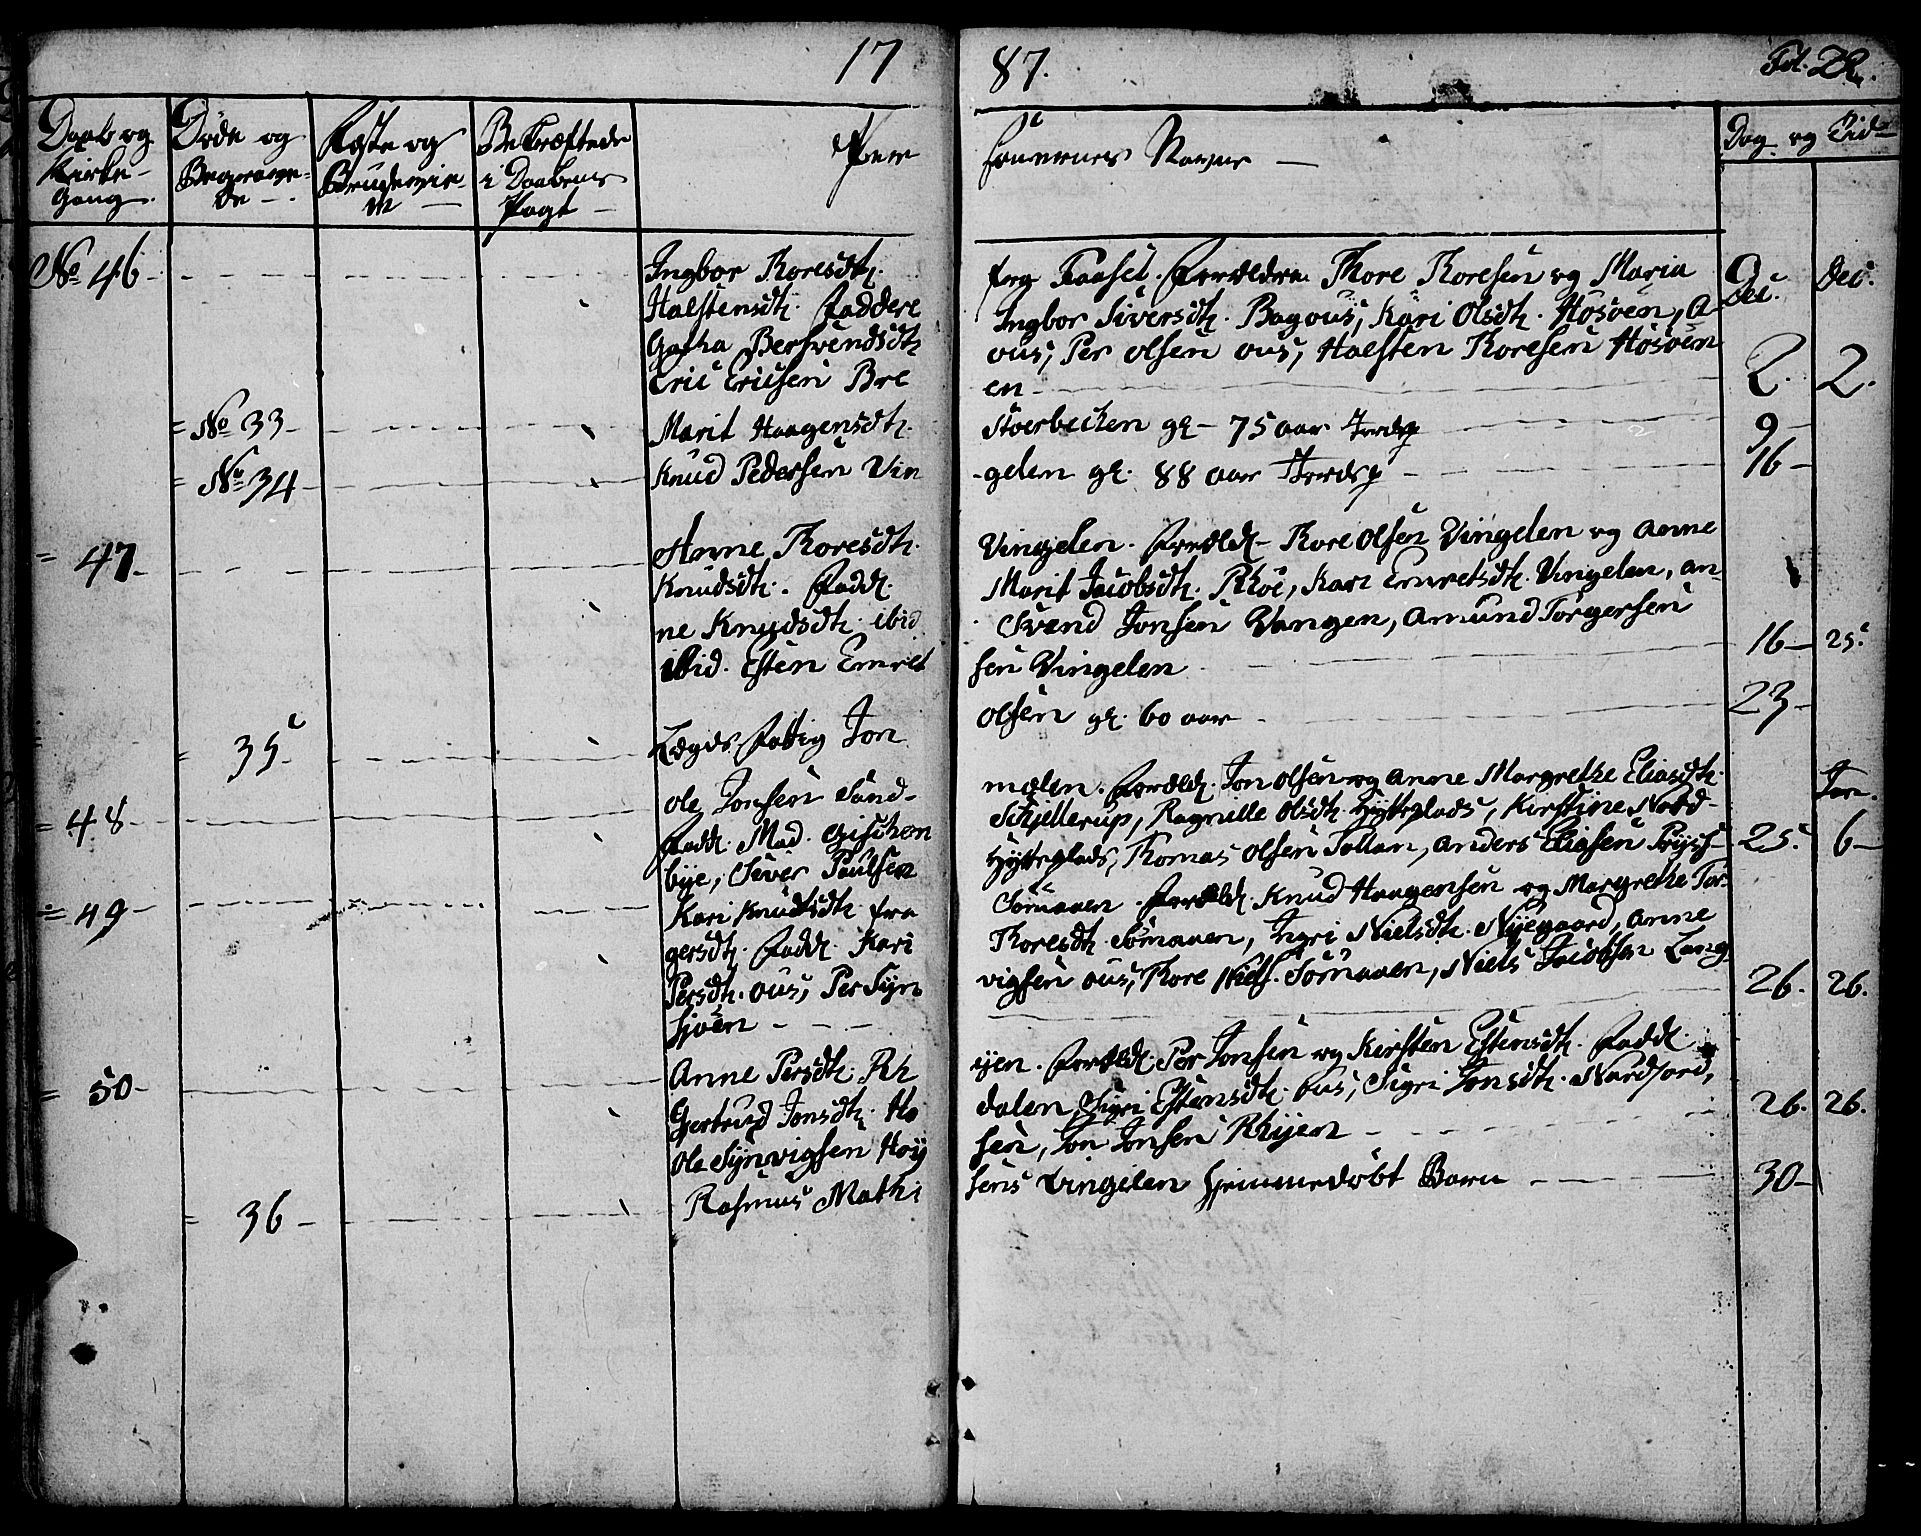 17
87.
Fol. 22.
Daab og
Kirke-
Gang.
Døde og
Begrave-
de -.
Fæste og
Brudevie-
de -
Bekræftede
i Daabens
Pagt -
Per
sonernes Navne -
Dag og Tid
No 46
Ingbor Thoresdtr. fra Faaset. Forældre Thore Thoresen og Maria
Halstensdtr. Faddere Ingbor Siversdtr. Bagous, Kari Olsdtr. Hosøen, A-
Gatha Bersvendsdtr ous, Per Olsen ous, Halsten Thoresen Hosøen
Eric Ericsen Bre en
Dec. 2. Dec. 2.
No 33 Marit Haagensdtr. Støerbecken gl. 75 aar Jordsp 9
No 34 Knud Pedersen Vin-gelen gl. 88 aar Jordsp 16
47 Anne Thoresdtr. Vingelen. Foræld. Thore Olsen Vingelen og Anne
Knudsdtr. Fadd. Marit Jacobsdtr. Rhöe, Kari Emretsdtr. Vingelen, An-
ne Knudsdtr. ibid Svend Jonsen Vangen, Amund Torgersen
ibid. Esten Emret sen Vingelen 16 25
35 Lægds Fattig Jon Olsen gl. 60 aar 23
48 Ole Jonsen Sand- mælen. Foræld. Jon Olsen og Anne Margrethe Eliasdtr.
Fadd. Mad. Schjellerup, Ragnille Olsdtr. Hytteplads, Kirstine Nord-
bye, Siver Paulsen Hytteplads, Thomas Olsen Tollan, Anders Eliasen 25. Jan. 6
49 Kari Knudsdtr. fra Sømaaen. Foræld. Knud Haagensen og Margrethe Tor-
gersdtr. Fadd. Kari Thoresdtr. Sømaaen, Ingri Nielsdtr. Nyegaard, Anne
Persdtr. ous, Per Syn vigsen ous, Thore Niels. Sømaaen, Niels Jacobsen Lang
sjøen - - - 26. 26.
50 Anne Persdtr. Rh yen. Foræld. Per Jonsen og Kirsten Estensdtr. Fadd.
Gertrud Jonsdtr. Ho dalen, Sigri Estensdtr. ous, Sigri Jonsdtr. Nordjord,
Ole Synvigsen Høy sen, Jon Jonsen Rhyen 26. 26.
36 Rasmus Mathi sens Vingelen hjemmedøbt Barn 30